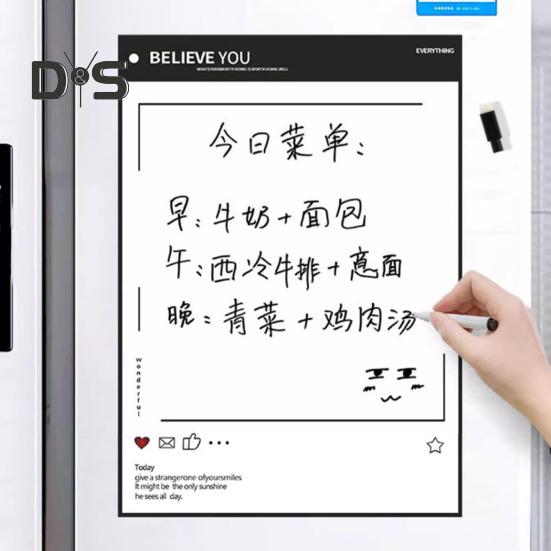 D&S
BELIEVE YOU
EVERYTHING
WHATEVERISWORTH DOING IS WORTH DOING WELL
今日菜单:
早:牛奶+面包
午:西冷牛排+意面
晚:青菜+鸡肉汤
wonderful
Today
give a strangerone ofyoursmiles
It might be the only sunshine
he sees all day.